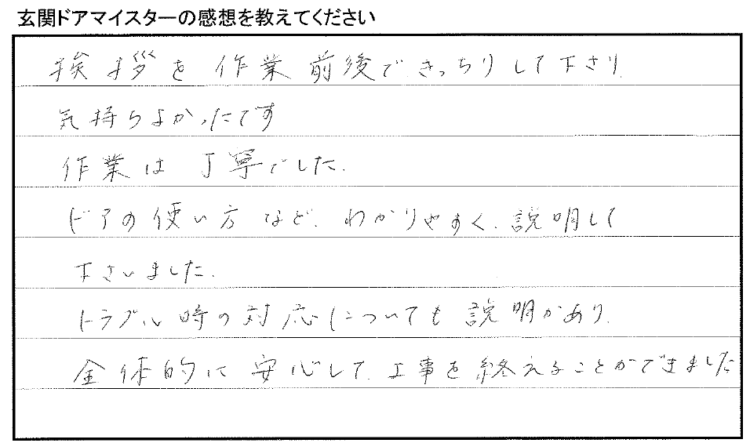 玄関ドアマイスターの感想を教えてください
挨拶を作業前後できっちりして下さり
気持ちよかったです
作業は丁寧でした.
ドアの使い方など、わかりやすく、説明して
下さいました.
トラブル時の対応についても説明があり、
全体的に安心して、工事を終えることができました